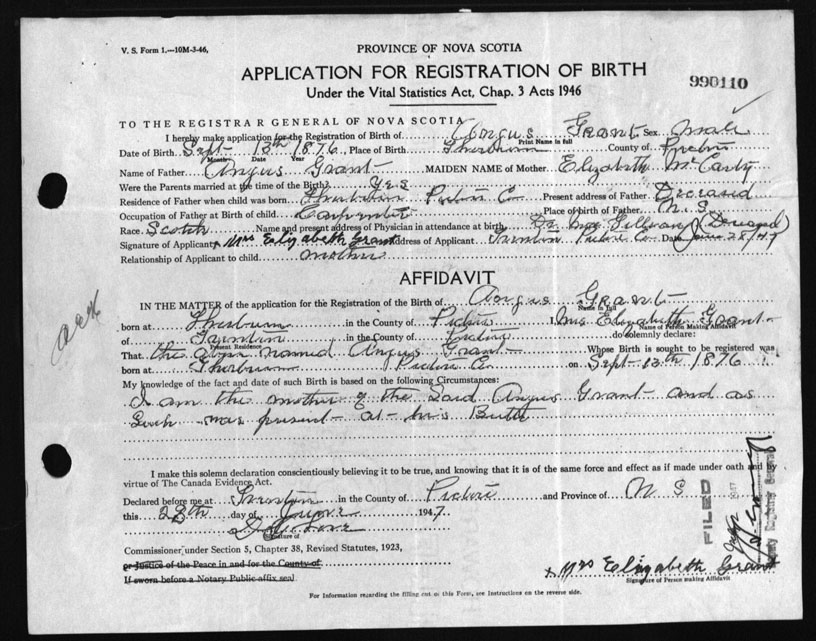 V. S. Form 1.—10M-3-46,
PROVINCE OF NOVA SCOTIA
APPLICATION FOR REGISTRATION OF BIRTH
990110
Under the Vital Statistics Act, Chap. 3 Acts 1946
TO THE REGISTRAR GENERAL OF NOVA SCOTIA
I hereby make application for the Registration of Birth of Angus Grant Sex Male
Print Name in full
Date of Birth Sept 13th 1876, Place of Birth Thorburn County of Pictou
Month Date Year
Name of Father Angus Grant MAIDEN NAME of Mother Elizabeth McCarty
Were the Parents married at the time of the Birth? Yes
Residence of Father when child was born Thorburn Pictou Co. Present address of Father Deceased
Occupation of Father at Birth of child Carpenter Place of birth of Father N. S.
Race Scotch Name and present address of Physician in attendance at birth Dr. (Deceased)
Signature of Applicant x Mrs Elizabeth Grant Address of Applicant Pictou Co. Date June 28/47
Relationship of Applicant to child mother
AFFIDAVIT
IN THE MATTER of the application for the Registration of the Birth of Angus Grant
Name in full
born at Thorburn in the County of Pictou I, Mrs Elizabeth Grant
Name of Person Making Affidavit
of in the County of Pictou do solemnly declare:
Present Residence
That the above named Angus Grant Whose Birth is sought to be registered was
born at Thorburn Pictou Co. on Sept 13th 1876
My knowledge of the fact and date of such Birth is based on the following Circumstances:
I am the mother of the Said Angus Grant and as
Such was present at his Birth
I make this solemn declaration conscientiously believing it to be true, and knowing that it is of the same force and effect as if made under oath and by
virtue of The Canada Evidence Act.
Declared before me at in the County of Pictou and Province of N S
this 28th day of June 1947
Signature of
Commissioner under Section 5, Chapter 38, Revised Statutes, 1923,
or Justice of the Peace in and for the County of
If sworn before a Notary Public affix seal
x Mrs Elizabeth Grant
Signature of Person making Affidavit
FILED
For Information regarding the filling out of this Form, see Instructions on the reverse side.